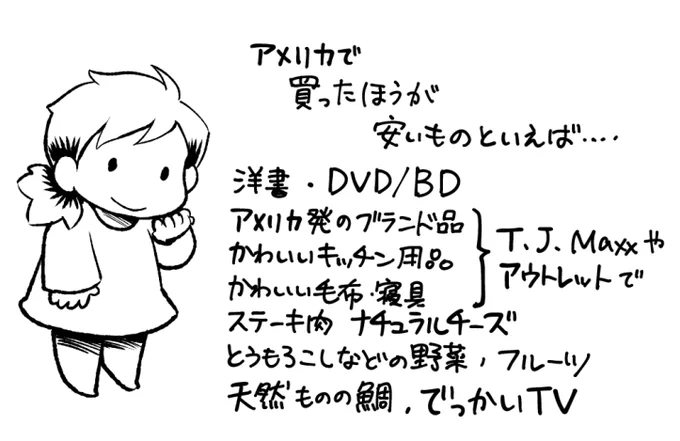 アメリカで
買ったほうが
安いものといえば‥‥
洋書・DVD/BD
アメリカ発のブランド品
かわいいキッチン用品
かわいい毛布・寝具
T.J.Maxxや
アウトレットで
ステーキ肉 ナチュラルチーズ
とうもろこしなどの野菜,フルーツ
天然ものの鯛,でっかいTV